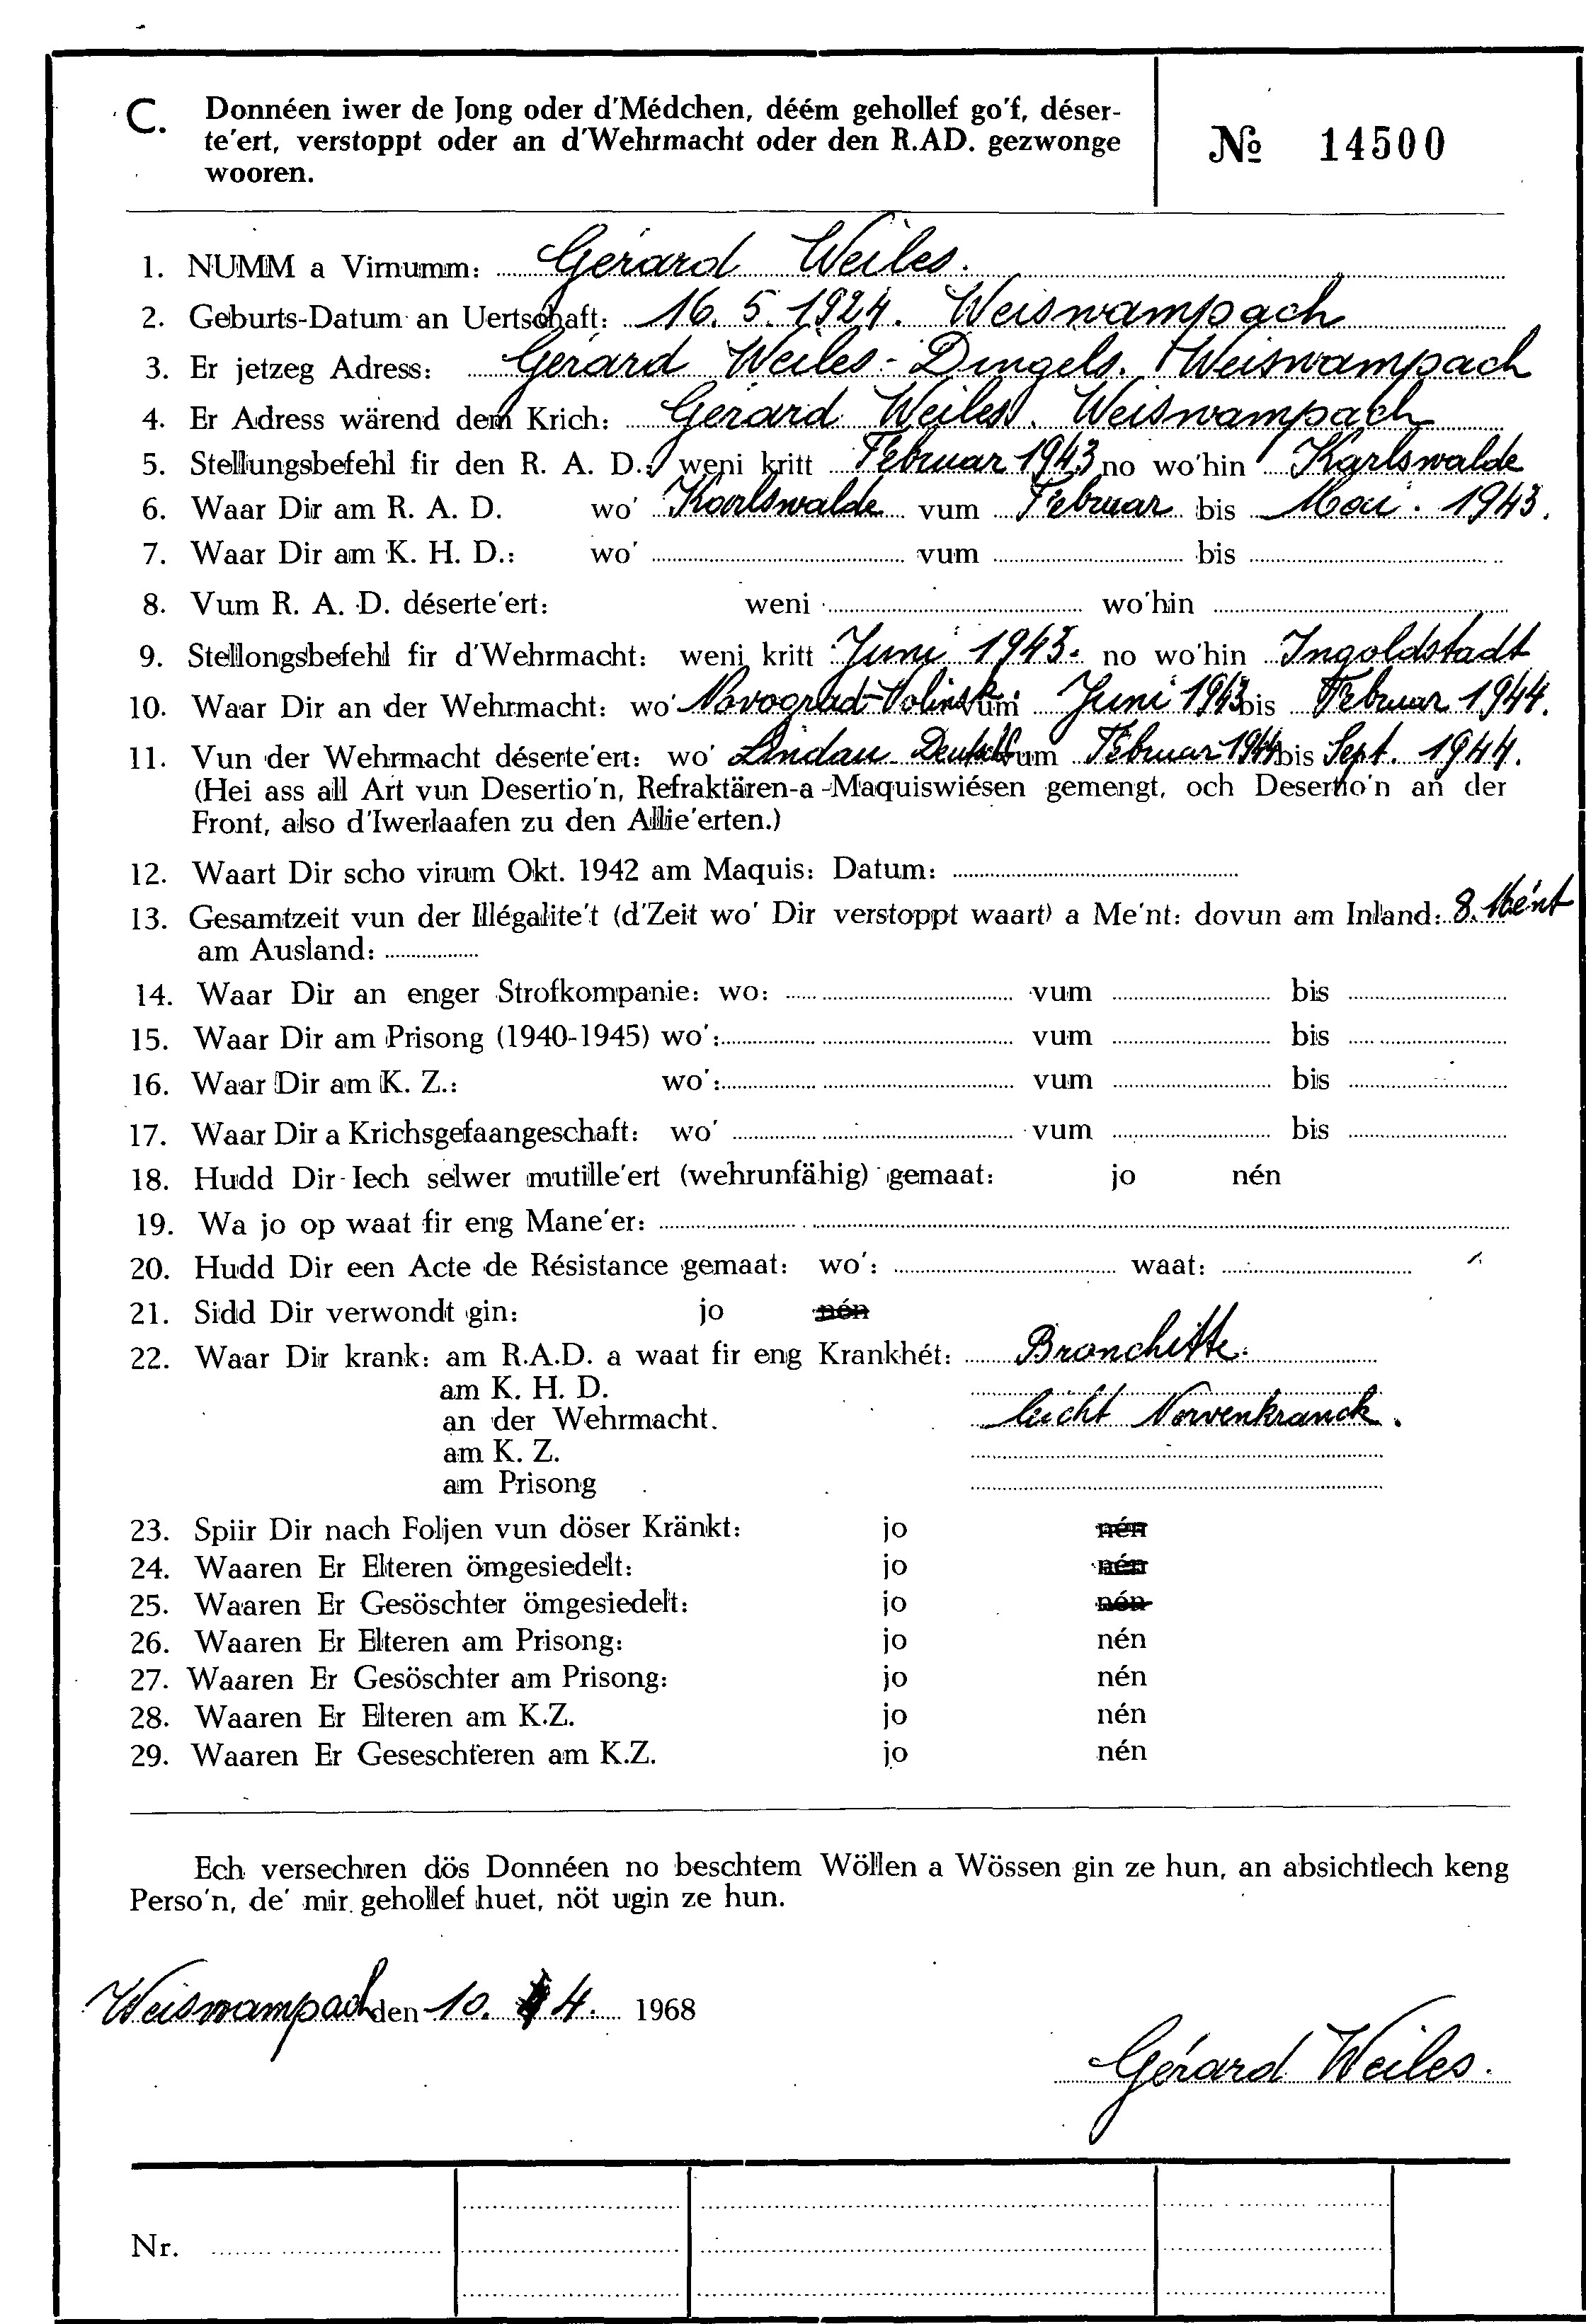 C. Donnéen iwer de Jong oder d'Médchen, déém gehollef go'f, déser-
te'ert, verstoppt oder an d'Wehrmacht oder den R.AD. gezwonge
wooren.
№ 14500
1. NUMM a Virnumm: Gérard Weiles.
2. Geburts-Datum an Uertschaft: 16. 5. 1924. Weiswampach
3. Er jetzeg Adress: Gérard Weiles-Dingels. Weiswampach
4. Er Adress wärend dem Krich: Gérard Weiles. Weiswampach
5. Stellungsbefehl fir den R. A. D.: weni kritt Februar 1943 no wo'hin Karlswalde
6. Waar Dir am R. A. D. wo' Karlswalde vum Februar bis Mai. 1943.
7. Waar Dir am K. H. D.: wo' vum bis
8. Vum R. A. D. déserte'ert: weni wo'hin
9. Stellongsbefehl fir d'Wehrmacht: weni kritt Juni 1943. no wo'hin Ingoldstadt
10. Waar Dir an der Wehrmacht: wo' Novograd-Volinsk. vum Juni 1943 bis Februar 1944.
11. Vun der Wehrmacht déserte'ert: wo' Lindau vum Februar 1944 bis Sept. 1944.
(Hei ass all Art vun Desertio'n, Refraktären-a-Maquiswiésen gemengt, och Desertio'n an der
Front, also d'Iwerlaafen zu den Allie'erten.)
12. Waart Dir scho virum Okt. 1942 am Maquis: Datum:
13. Gesamtzeit vun der Illégalite't (d'Zeit wo' Dir verstoppt waart) a Me'nt: dovun am Inland: 8. Mént
am Ausland:
14. Waar Dir an enger Strofkompanie: wo: vum bis
15. Waar Dir am Prisong (1940-1945) wo': vum bis
16. Waar Dir am K. Z.: wo': vum bis
17. Waar Dir a Krichsgefaangeschaft: wo' vum bis
18. Hudd Dir Iech selwer mutille'ert (wehrunfähig) gemaat: jo nén
19. Wa jo op waat fir eng Mane'er:
20. Hudd Dir een Acte de Résistance gemaat: wo': waat:
21. Sidd Dir verwondt gin: jo nén
22. Waar Dir krank: am R.A.D. a waat fir eng Krankhét: Bronchitte.
am K. H. D.
an der Wehrmacht. leicht Nervenkranck.
am K. Z.
am Prisong
23. Spiir Dir nach Foljen vun döser Kränkt: jo nén
24. Waaren Er Elteren ömgesiedelt: jo nén
25. Waaren Er Gesöschter ömgesiedelt: jo nén
26. Waaren Er Elteren am Prisong: jo nén
27. Waaren Er Gesöschter am Prisong: jo nén
28. Waaren Er Elteren am K.Z. jo nén
29. Waaren Er Geseschteren am K.Z. jo nén
Ech versechren dös Donnéen no beschtem Wöllen a Wössen gin ze hun, an absichtlech keng
Perso'n, de' mir gehollef huet, nöt ugin ze hun.
Weiswampach den 10. 4. 1968
Gérard Weiles.
Nr.